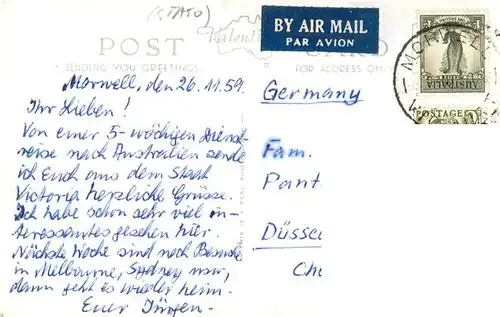 (STATO)
BY AIR MAIL
PAR AVION
POST CARD
Valenti
SENDING YOU GREETINGS
FOR ADDRESS ONLY
Morwell, den 26.11.59.
Ihr Lieben!
Von einer 5-wöchigen Dienst-
reise nach Australien sende
ich Euch aus dem Staat
Victoria herzliche Grüsse.
Ich habe schon sehr viel in-
teressantes gesehen hier.
Nächste Woche sind noch Besuche
in Melbourne, Sydney usw,
dann geht es wieder heim.
Euer Jürgen-
Germany
Fam.
Pant
Düssel
MORWELL
AUSTRALIA
POSTAGE